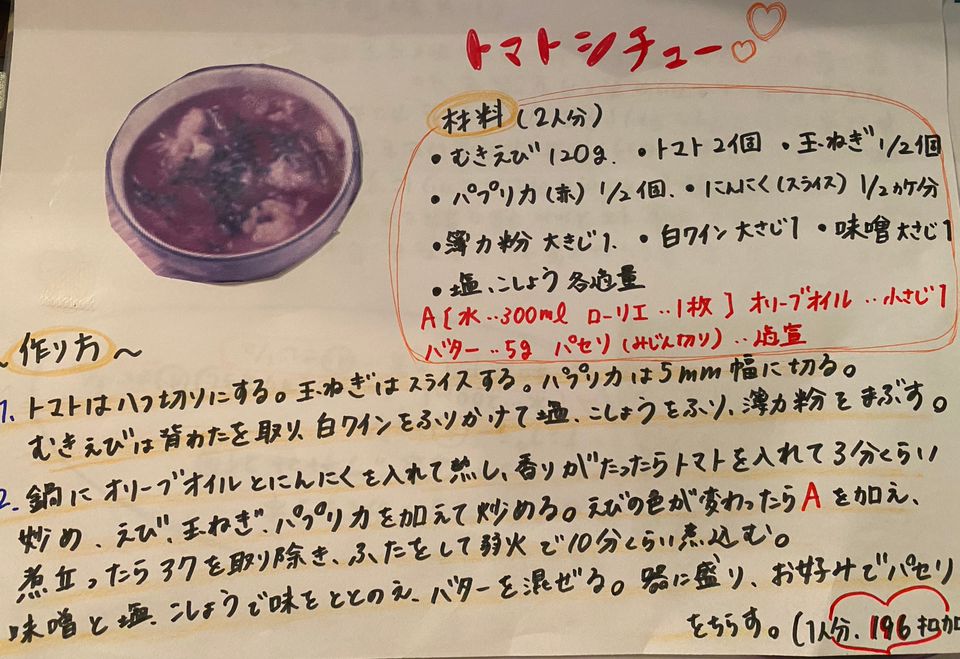 トマトシチュー
材料(2人分)
・むきえび120g.・トマト2個・玉ねぎ1/2個
・パプリカ(赤)1/2個.・にんにく(スライス)1/2カケ分
・薄力粉 大さじ1.・白ワイン大さじ1・味噌大さじ1
・塩、こしょう各適量
A[水‥300ml ローリエ‥1枚]オリーブオイル‥小さじ1
バター‥5g パセリ(みじん切り)‥適宜
~作り方~
1. トマトは八つ切りにする。玉ねぎはスライスする。パプリカは5mm幅に切る。
むきえびは背わたを取り、白ワインをふりかけて塩、こしょうをふり、薄力粉をまぶす。
2. 鍋にオリーブオイルとにんにくを入れて熱し、香りがたったらトマトを入れて3分くらい
炒め、えび、玉ねぎ、パプリカを加えて炒める。えびの色が変わったらAを加え、
煮立ったらアクを取り除き、ふたをして弱火で10分くらい煮込む。
味噌と塩、こしょうで味をととのえ、バターを混ぜる。器に盛り、お好みでパセリ
をちらす。(1人分、196キロカロ